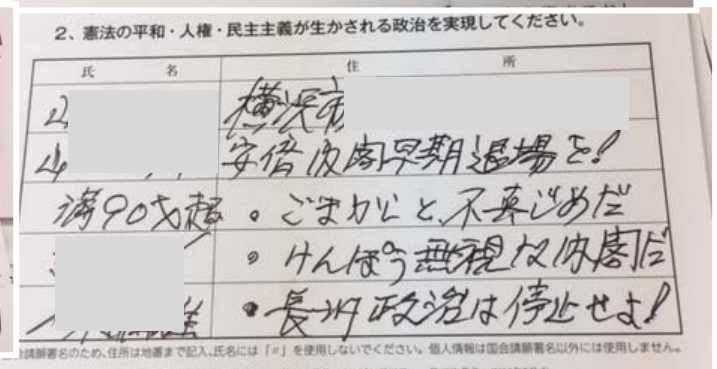 2、憲法の平和・人権・民主主義が生かされる政治を実現してください。
氏 名 住 所
横浜市
安倍内閣早期退場を！
満90才超 ・ごまかしと、不真じめだ
・けんぽう無視な内閣だ
・長期政治は停止せよ！
請願署名のため、住所は地番まで記入、氏名には「〃」を使用しないでください。個人情報は国会請願署名以外には使用しません。